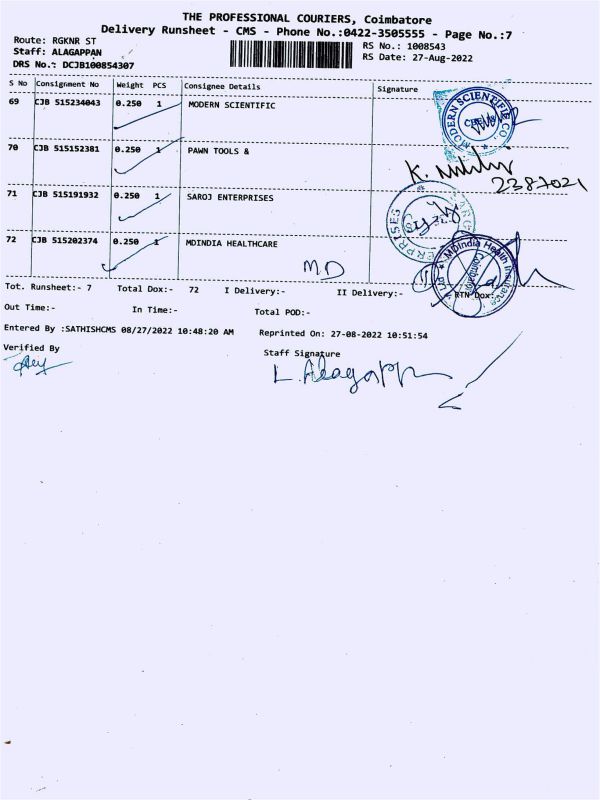 THE PROFESSIONAL COURIERS, Coimbatore
Delivery Runsheet - CMS - Phone No.:0422-3505555 - Page No.:7
Route: RGKNR ST
RS No.: 1008543
Staff: ALAGAPPAN
RS Date: 27-Aug-2022
DRS No.: DCJB100854307
S No Consignment No Weight PCS Consignee Details Signature
69 CJB 515234043 0.250 1 MODERN SCIENTIFIC
MODERN SCIENTIFIC CO.
70 CJB 515152381 0.250 1 PAWN TOOLS &
2387021
71 CJB 515191932 0.250 1 SAROJ ENTERPRISES
72 CJB 515202374 0.250 1 MDINDIA HEALTHCARE
MD
MDIndia Health Insurance
Tot. Runsheet:- 7 Total Dox:- 72 I Delivery:- II Delivery:- RTN Dox:-
Out Time:- In Time:- Total POD:-
Entered By :SATHISHCMS 08/27/2022 10:48:20 AM Reprinted On: 27-08-2022 10:51:54
Verified By
Staff Signature
L. Alagappn